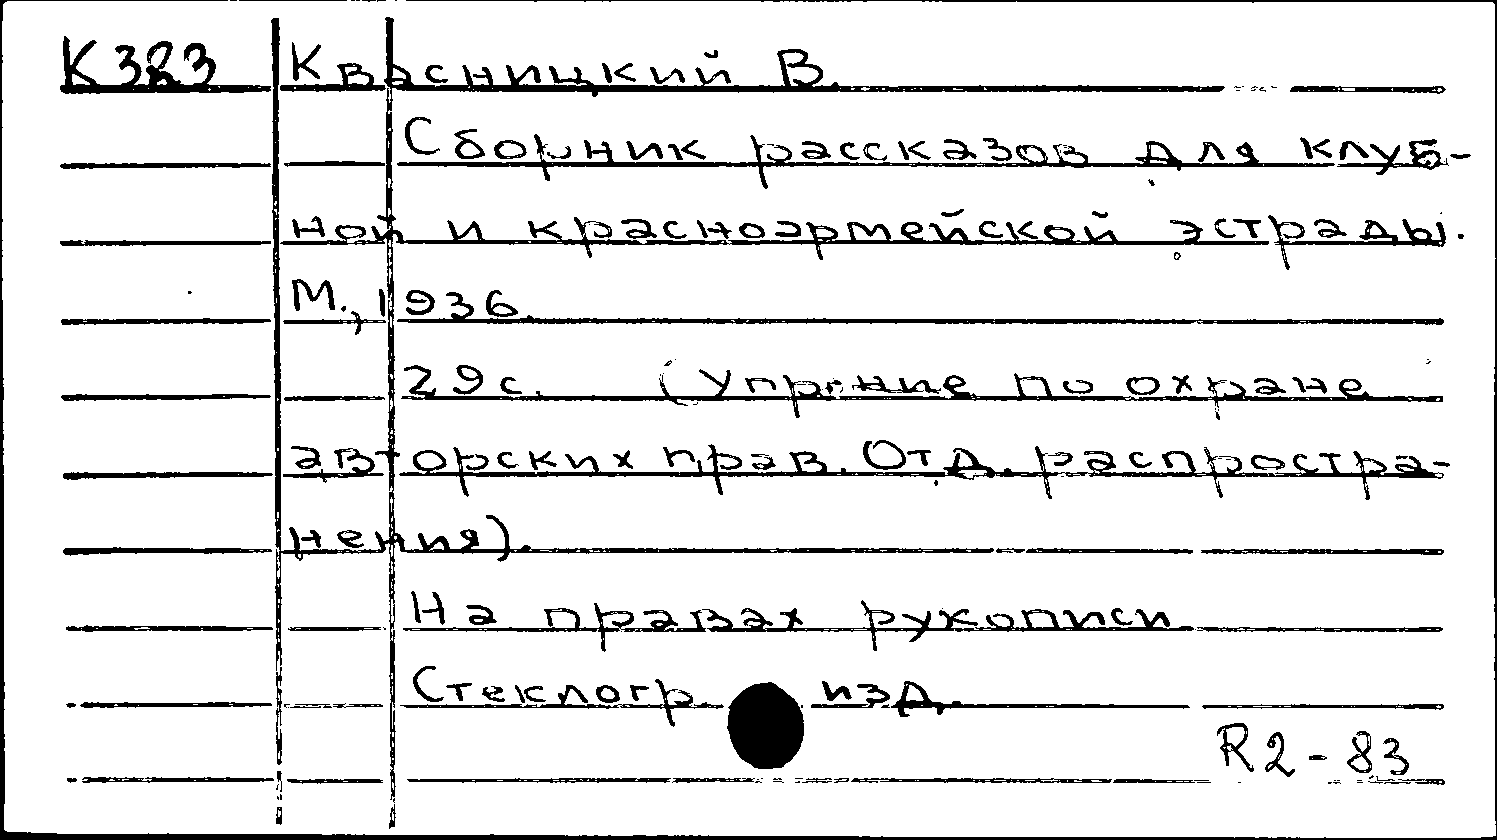 К383 Квасницкий В.
Сборник рассказов для клуб-
ной и красноармейской эстрады.
М., 1936.
29с. (Упр-ние по охране
авторских прав. Отд. распростра-
нения).
На правах рукописи
Стеклогр. изд.
R2-83